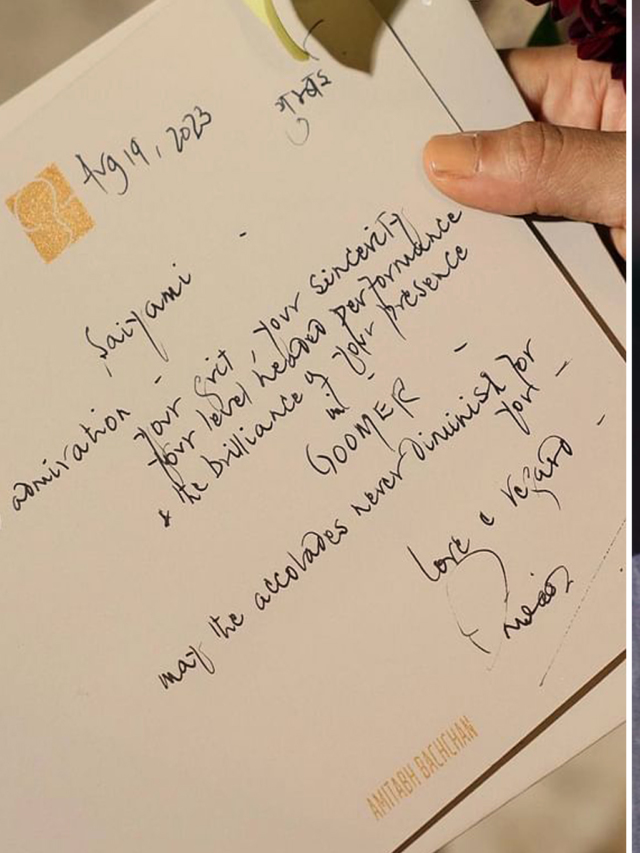 Aug 19, 2023
Saiyami -
admiration -
your Grit, your sincerity
your level headed performance
& the brilliance of your presence
in -
GOOMER -
may the accolades never diminish for
you -
love e regard -
AMITABH BACHCHAN